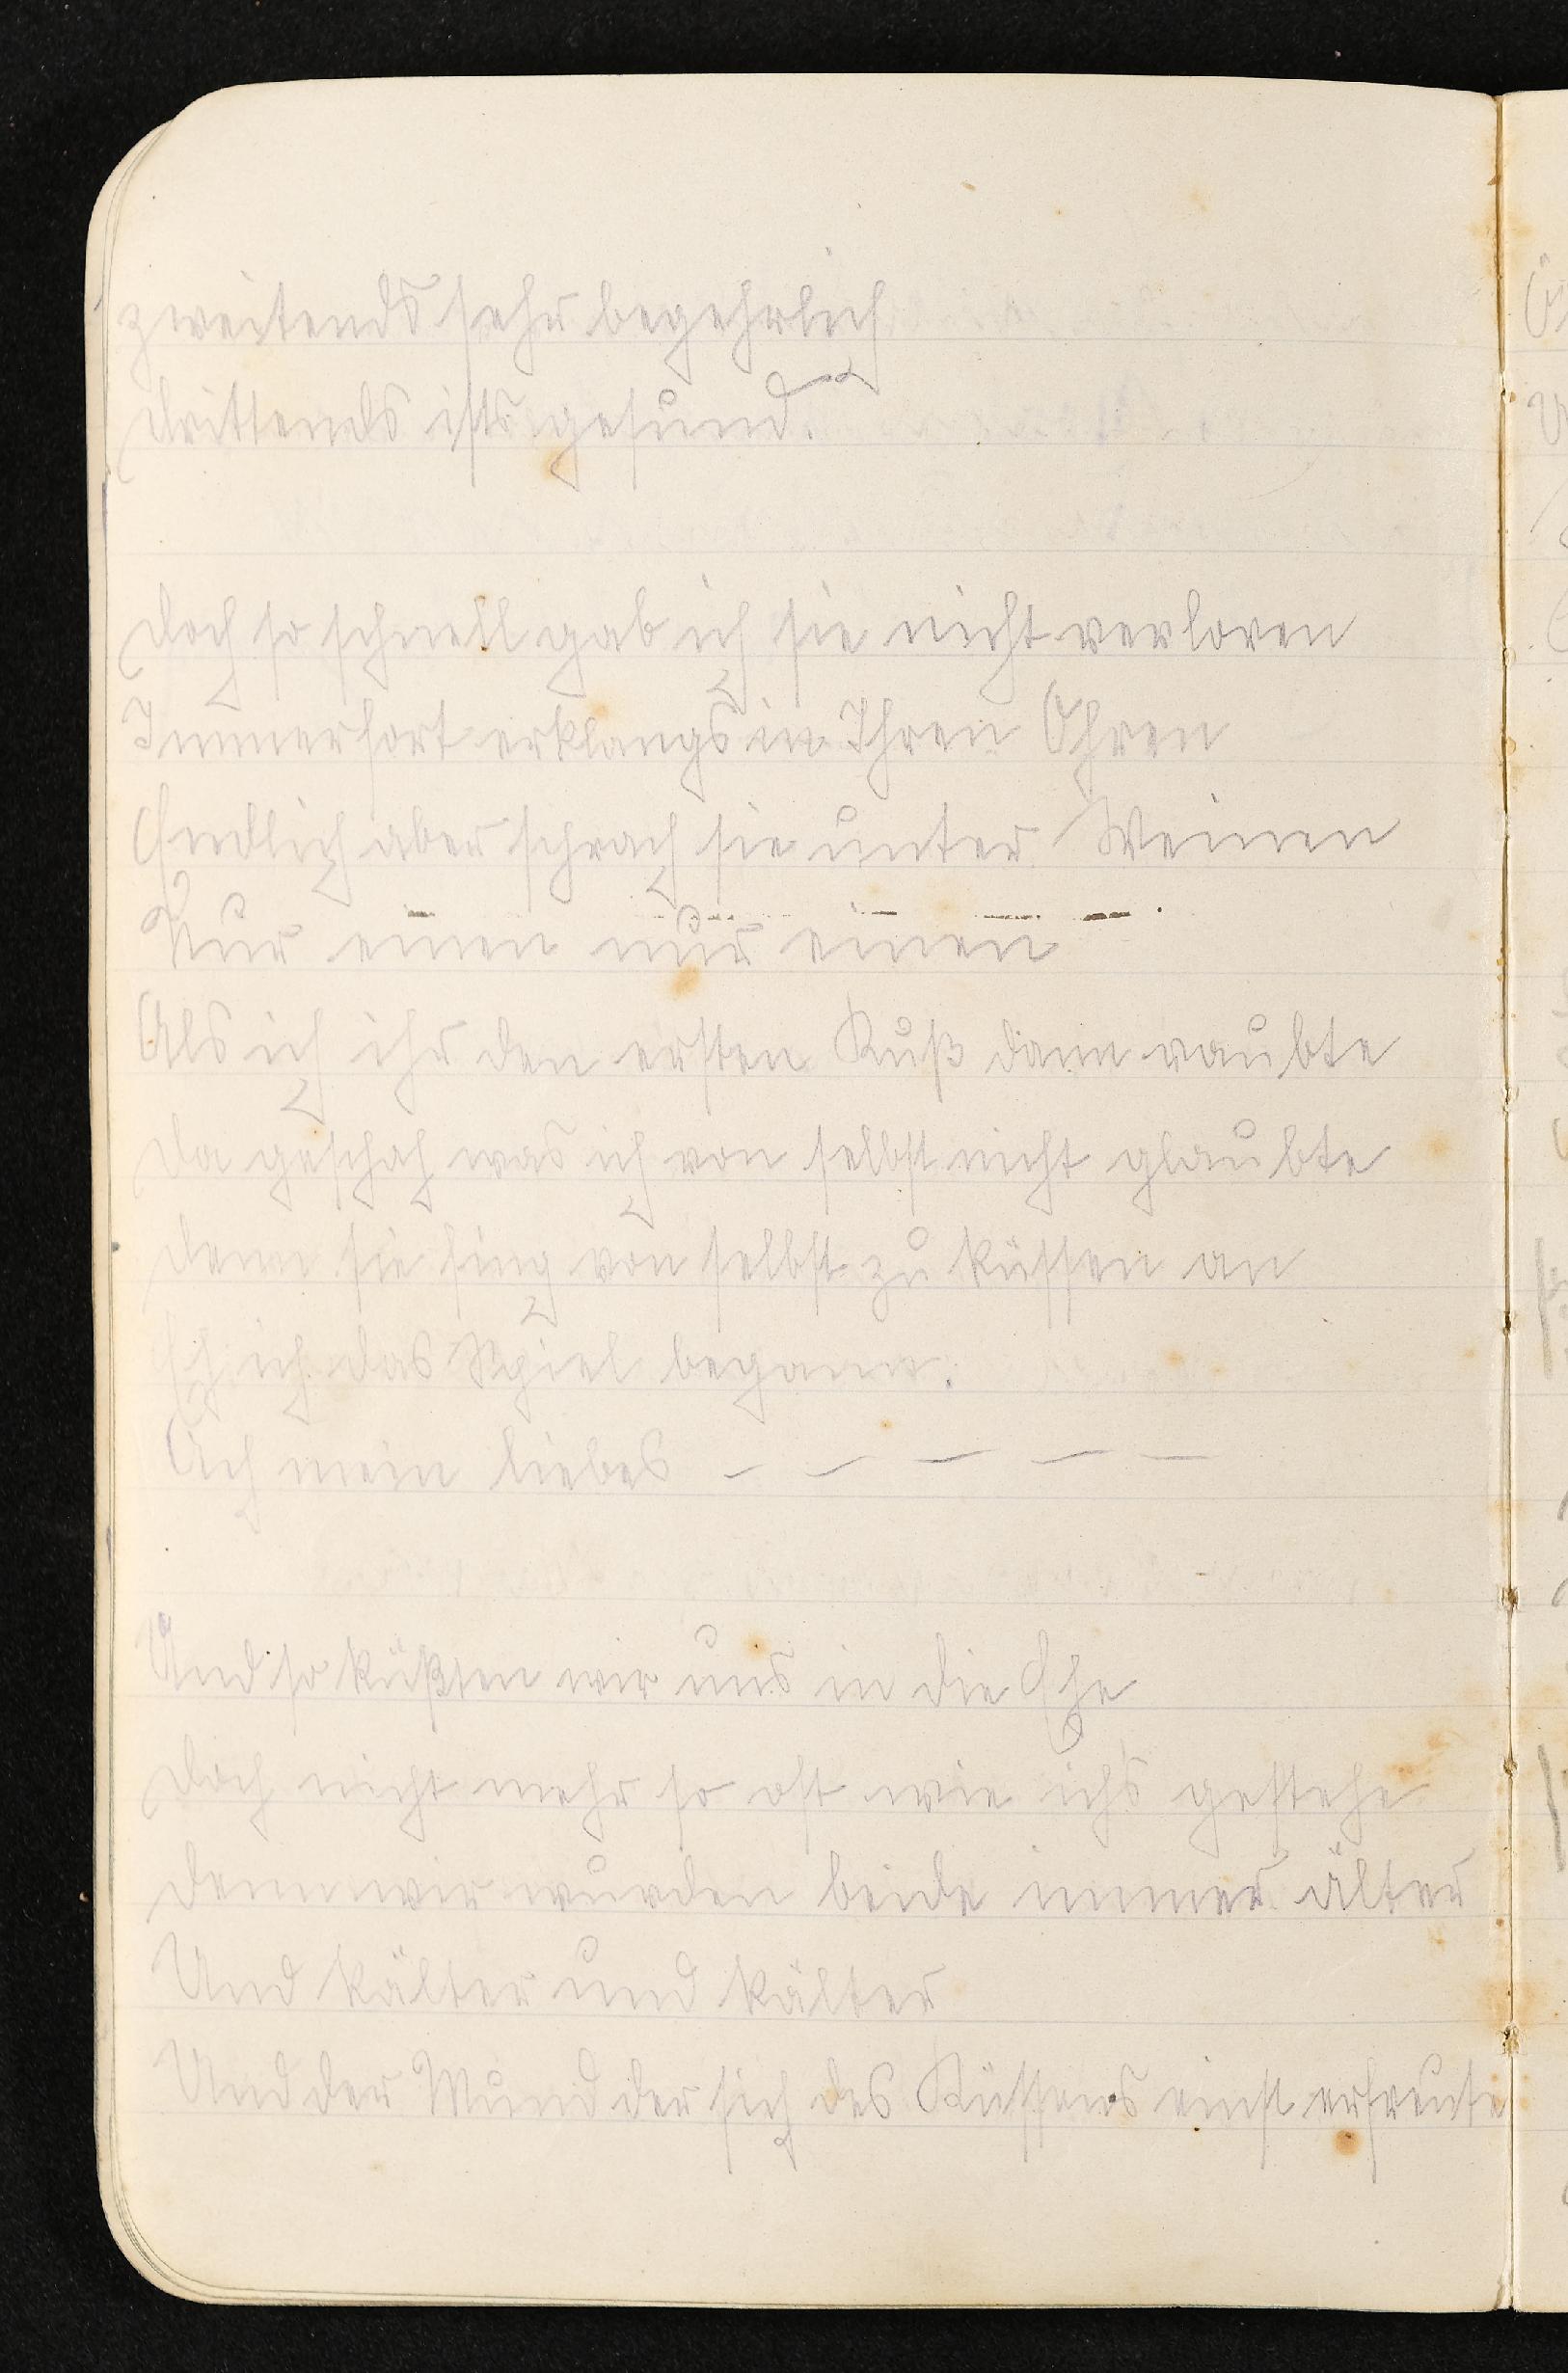 zweitends sehr begehrlich
drittends ists gesund.
doch so schnell gab ich sie nicht verloren
Immerfort erklangs in Ihren Ohren
Endlich aber sprach sie unter Weinen
Nur einen nur einen
Als ich ihr den ersten Kuß dann raubte
da geschah was ich von selbst nicht glaubte
denn sie fing von selbst zu küssen an
Eh ich das Spiel begann.
Ach mein liebes – – – – –
Und so küßten wir uns in die Ehe
doch nicht mehr so oft wie ichs gestehe
denn wir wurden beide immer älter
Und kälter und kälter
Und der Mund der sich des Küssens einst erfreute